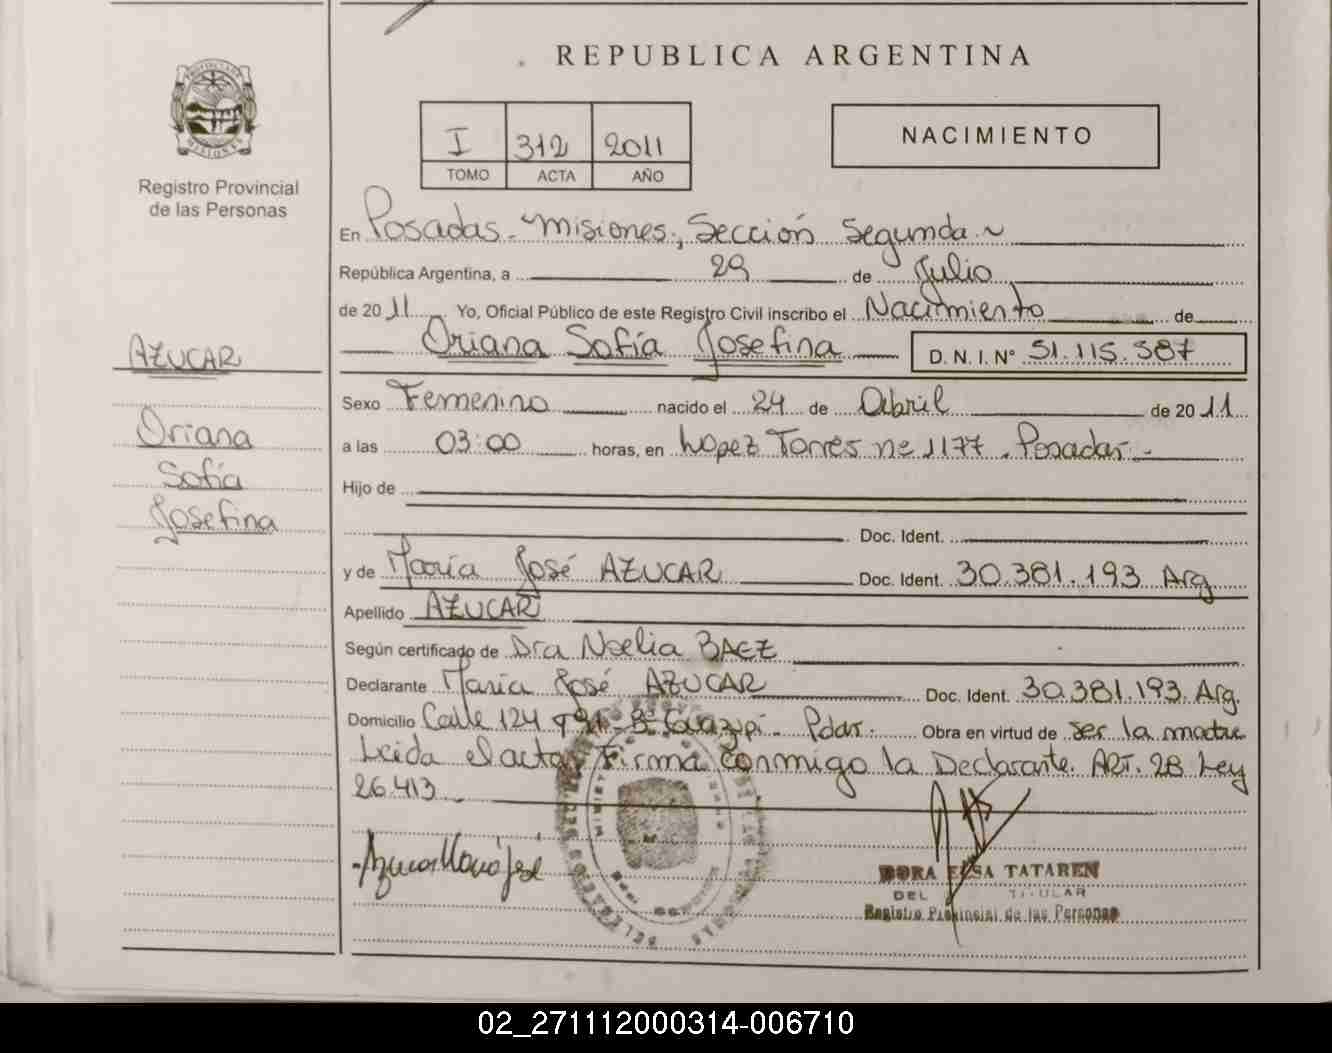 REPUBLICA ARGENTINA
PROVINCIA DE
MISIONES
Registro Provincial
de las Personas
I 312 2011
TOMO ACTA AÑO
NACIMIENTO
En Posadas - Misiones, Sección Segunda
República Argentina, a 29 de Julio
de 2011 Yo, Oficial Público de este Registro Civil inscribo el Nacimiento de
Oriana Sofía Josefina D. N. I. Nº 51.115.587
AZUCAR
Oriana
Sofía
Josefina
Sexo Femenino nacido el 24 de Abril de 2011
a las 03:00 horas, en Lopez Torres ne 1177. Posadas.-
Hijo de
Doc. Ident.
y de María José AZUCAR Doc. Ident. 30.381.193 Arg
Apellido AZUCAR
Según certificado de Dra Noelia BAEZ
Declarante María José AZUCAR Doc. Ident. 30.381.193. Arg.
Domicilio Calle 124 Pdas. Obra en virtud de ser la madre
Leida el acta, Firma conmigo la Declarante. ART. 28 Ley
26.413
Azucar Maria José
DORA ELSA TATAREN
DEL TITULAR
Registro Provincial de las Personas
02_271112000314-006710